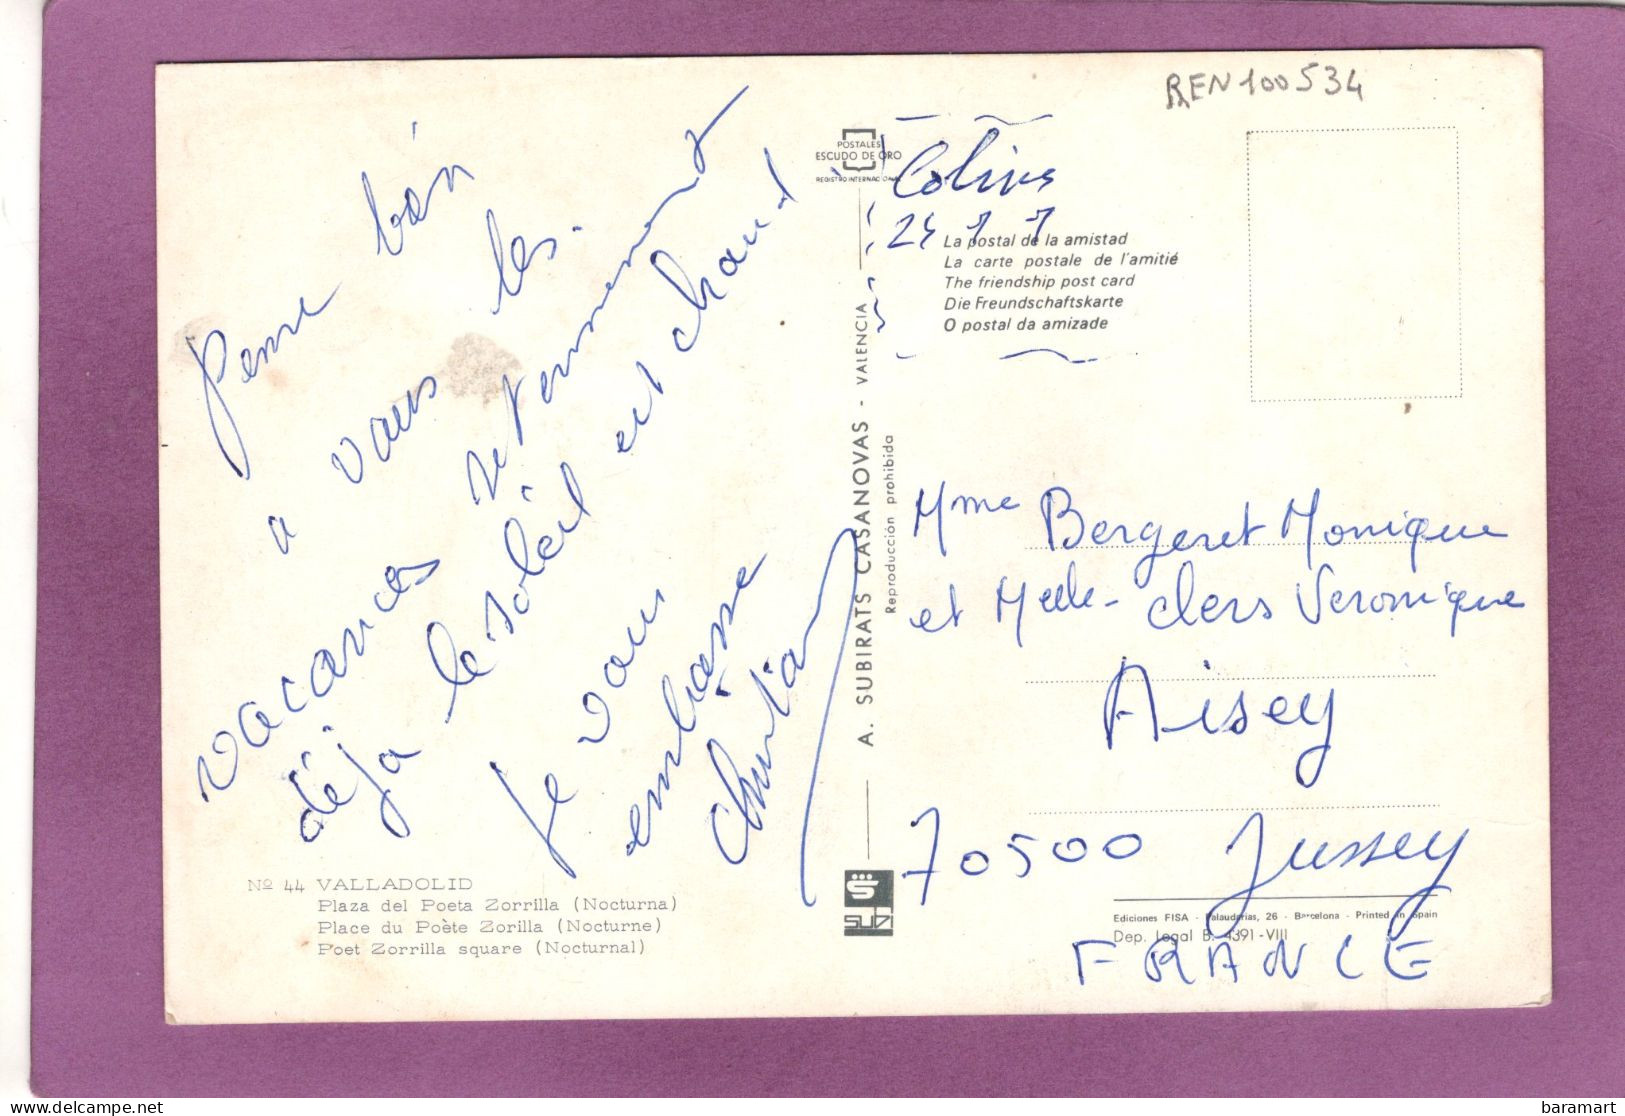 REN100534
POSTALES
ESCUDO DE ORO
REGISTRO INTERNACIONAL
24 7 7
La postal de la amistad
La carte postale de l'amitié
The friendship post card
Die Freundschaftskarte
O postal da amizade
bén
à vous les
vacances se terminent
déjà le soleil est chaud
Je vous
embrasse
Christian
A. SUBIRATS CASANOVAS - VALENCIA
Reproducción prohibida
Mme Bergeret Monique
et Melle - clers Veronique
Aisey
70500 Jussey
FRANCE
Nº 44 VALLADOLID
Plaza del Poeta Zorrilla (Nocturna)
Place du Poète Zorilla (Nocturne)
Poet Zorrilla square (Nocturnal)
subi
Ediciones FISA - Palaudarias, 26 - Barcelona - Printed in Spain
Dep. Legal B. 4391-VIII
delcampe.net
baramart